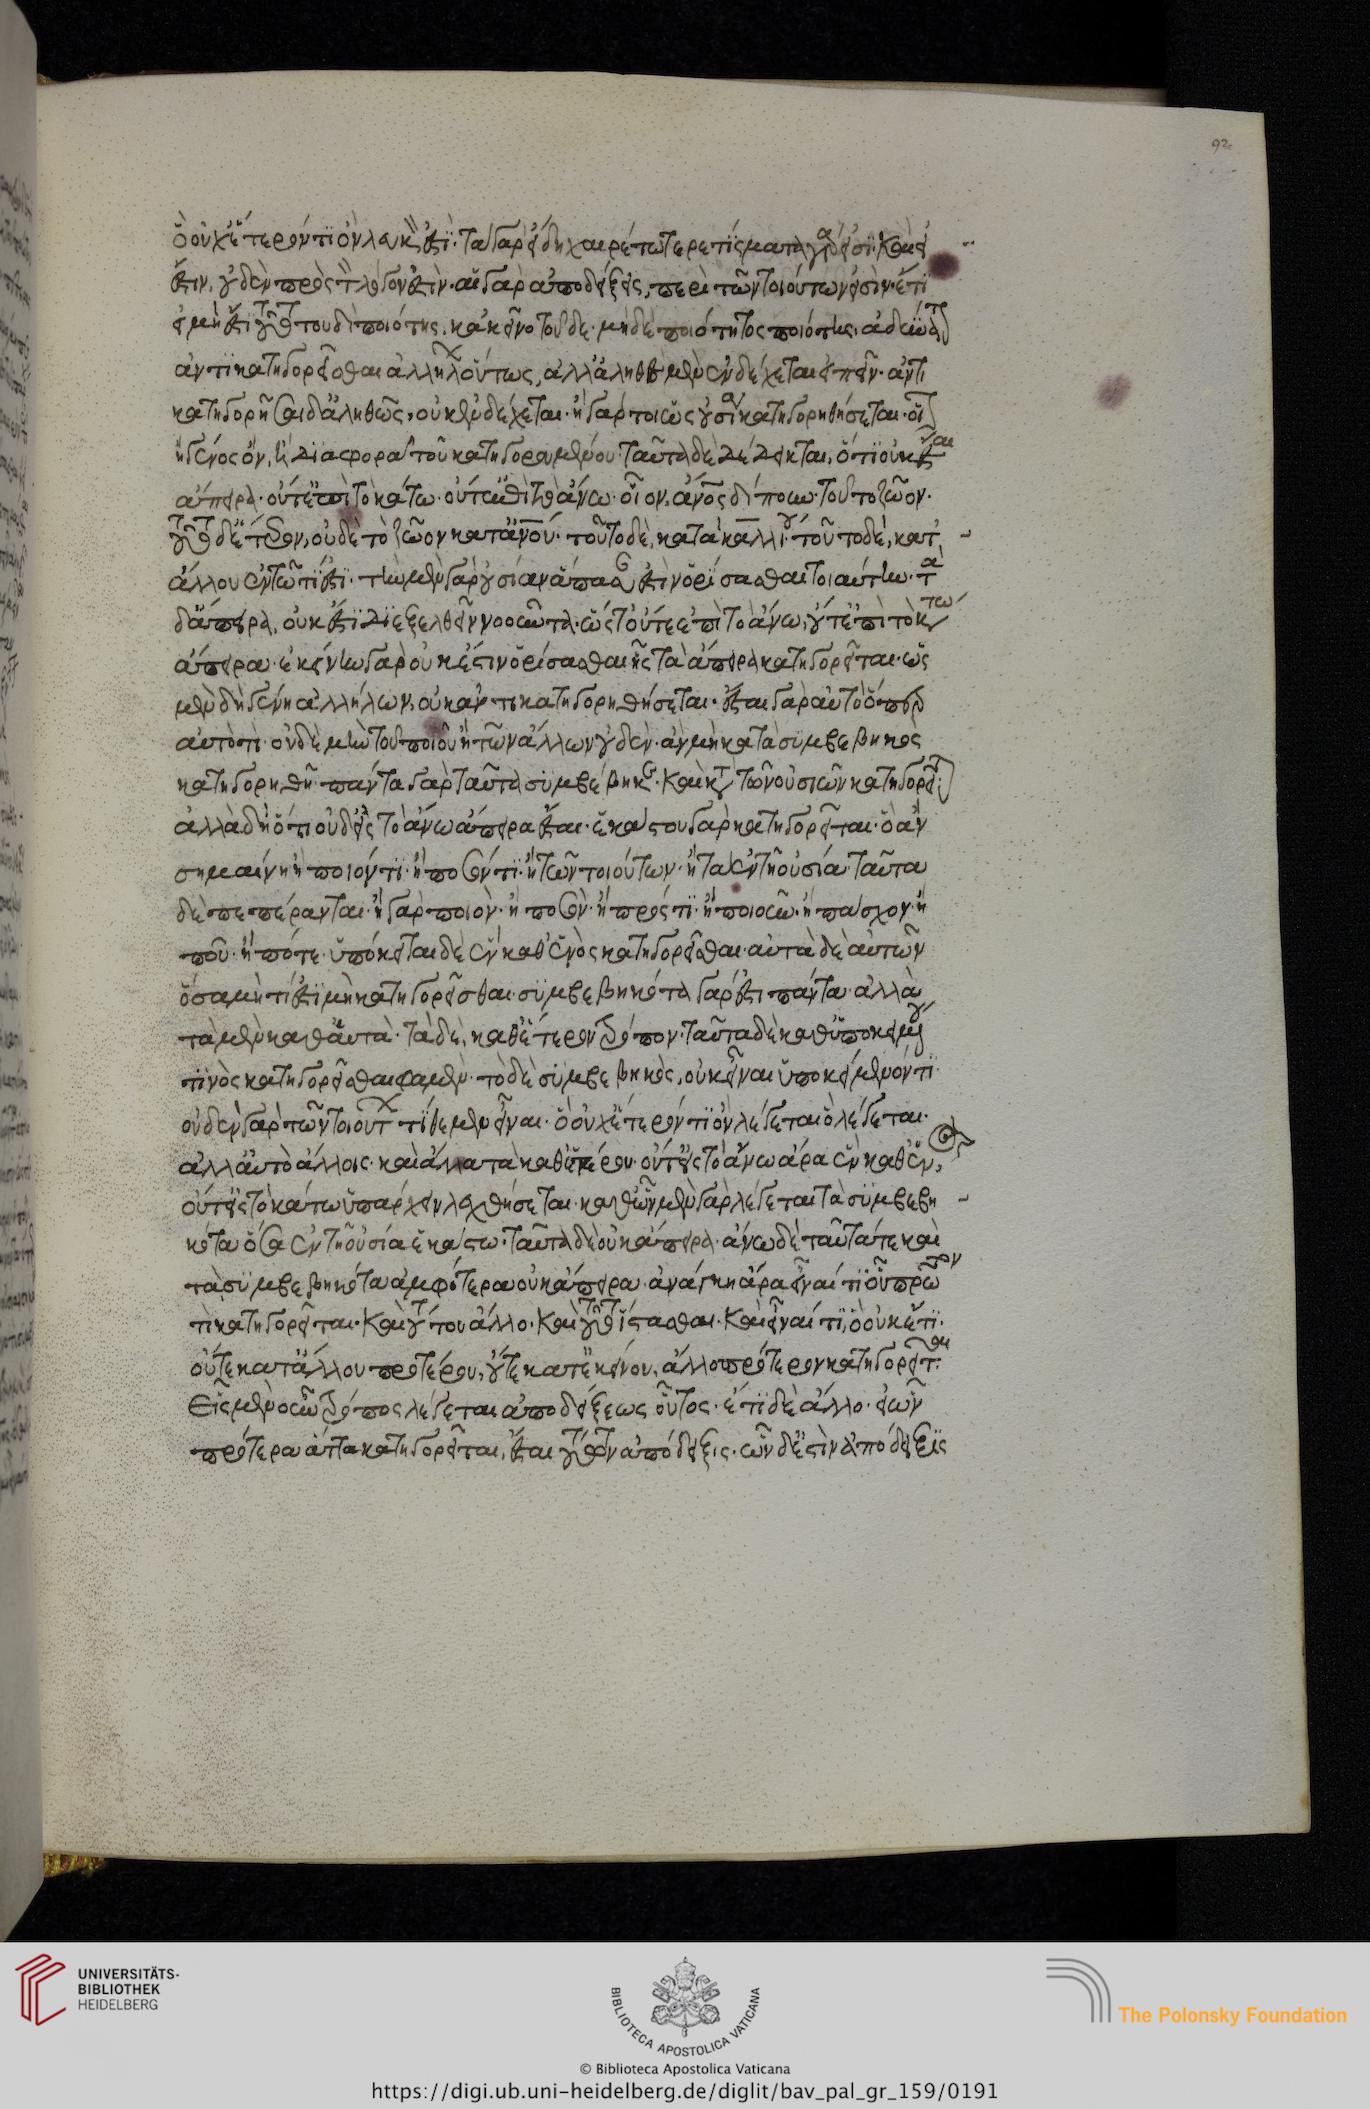 ὃ οὐχ ἕτερόν τι ὂν λευκόν ἐστι· τὰ γὰρ εἴδη χαιρέτω τερετίσματα γάρ εἰσι· καὶ εἰ
ἔστιν, οὐδὲν πρὸς τὸν λόγον ἐστίν· αἱ γὰρ ἀποδείξεις, περὶ τῶν τοιούτων εἰσίν· ἔτι
εἰ μὴ ἔστι τοῦτο τουδὶ ποιότης, κἀκεῖνο τοῦδε· μηδὲ ποιότητος ποιότης, ἀδύνατον
ἀντικατηγορεῖσθαι ἀλλήλων οὕτως, ἀλλ' ἀληθὲς μὲν ἐνδέχεται εἰπεῖν· ἀντι
κατηγορῆσαι δ' ἀληθῶς, οὐκ ἐνδέχεται· ἢ γάρ τοι ὡς οὐσία κατηγορηθήσεται· οἷον
ἢ γένος ὂν, ἢ διαφορὰ τοῦ κατηγορουμένου· ταῦτα δὲ δέδεικται, ὅτι οὐκ ἔσται
ἄπειρα· οὔτε ἐπὶ τὸ κάτω· οὔτε ἐπὶ τὸ ἄνω· οἷον, ἄνος δίπουν· τοῦτο ζῶον·
τοῦτο δ' ἕτερον, οὐδὲ τὸ ζῶον κατ' ἄνου· τοῦτο δὲ, κατὰ καλλίου· τοῦτο δὲ, κατ'
ἄλλου ἐν τῶ τί ἐστι· τὴν μὲν γὰρ οὐσίαν ἅπασαν ἐστὶν ὁρίσασθαι τοιαύτην· τὰ
δ' ἄπειρα, οὐκ ἔστι διεξελθεῖν νοοῦντα· ὥστ' οὔτε ἐπὶ τὸ ἄνω, οὔτε ἐπὶ τὸ κάτω
ἄπειρα· ἐκείνην γὰρ οὐκ ἔστιν ὁρίσασθαι ἧς τὰ ἄπειρα κατηγορεῖται· ὡς
μὲν δὴ γένη ἀλλήλων, οὐκ ἀντικατηγορηθήσεται· ἔσται γὰρ αὐτὸ ὅπερ
αὐτό τι· οὐδὲ μὴν τοῦ ποιοῦ ἢ τῶν ἄλλων οὐδὲν· ἂν μὴ κατὰ συμβεβηκὸς
κατηγορηθῆ· πάντα γὰρ ταῦτα συμβέβηκε· καὶ κατὰ τῶν οὐσιῶν κατηγορεῖται·
ἀλλὰ δὴ ὅτι οὐδ' εἰς τὸ ἄνω ἄπειρα ἔσται· ἑκάστου γὰρ κατηγορεῖται· ὃ ἂν
σημαίνη ἢ ποιόν τι· ἢ ποσόν τι· ἢ τῶν τοιούτων· ἢ τὰ ἐν τῆ οὐσία· ταῦτα
δὲ πεπέρανται· ἢ γὰρ ποιὸν· ἢ ποσὸν· ἢ πρός τι· ἢ ποιοῦν· ἢ πάσχον· ἢ
ποῦ· ἢ πότε· ὑπόκειται δὲ ἓν καθ' ἑνὸς κατηγορεῖσθαι· αὐτὰ δὲ αὐτῶν
ὅσα μὴ τί ἐστι μὴ κατηγορεῖσθαι· συμβεβηκότα γάρ ἐστι πάντα· ἀλλὰ
τὰ μὲν καθ' αὑτὰ· τὰ δὲ, καθ' ἕτερον τρόπον· ταῦτα δὲ καθ' ὑποκειμένου
τινὸς κατηγορεῖσθαι φαμὲν· τὸ δὲ συμβεβηκὸς, οὐκ εἶναι ὑποκείμενόν τι·
οὐδὲν γὰρ τῶν τοιούτων τίθεμεν εἶναι· ὃ οὐχ ἕτερόν τι ὂν λέγεται ὃ λέγεται·
ἀλλ' αὐτὸ ἄλλοις· καὶ ἄλλα τὰ καθ' ἑτέρου· οὔτ' εἰς τὸ ἄνω ἄρα ἓν καθ' ἓν,
οὔτ' εἰς τὸ κάτω ὑπάρχειν λεχθήσεται· καθ' ὧν μὲν γὰρ λέγεται τὰ συμβεβη
κότα ὅσα ἐν τῆ οὐσία ἑκάστω· ταῦτα δὲ οὐκ ἄπειρα· ἄνω δὲ ταῦτά τε καὶ
τὰ συμβεβηκότα ἀμφότερα οὐκ ἄπειρα· ἀνάγκη ἄρα εἶναί τι οὗ πρῶτον
τὶ κατηγορεῖται· καὶ τούτου ἄλλο· καὶ τοῦτο ἵστασθαι· καὶ εἶναί τι, ὃ οὐκέτι·
οὔτε κατ' ἄλλου προτέρου, οὔτε κατ' ἐκείνου, ἄλλο πρότερον κατηγορεῖται·
Εἷς μὲν οὖν τρόπος λέγεται ἀποδείξεως οὗτος· ἔτι δὲ ἄλλο· εἰ ὧν
πρότερα ἄττα κατηγορεῖται, ἔσται τούτων ἀπόδειξις· ὧν δ' ἐστὶν ἀπόδειξις
92
UNIVERSITÄTS-
BIBLIOTHEK
HEIDELBERG
BIBLIOTECA APOSTOLICA VATICANA
The Polonsky Foundation
© Biblioteca Apostolica Vaticana
https://digi.ub.uni-heidelberg.de/diglit/bav_pal_gr_159/0191